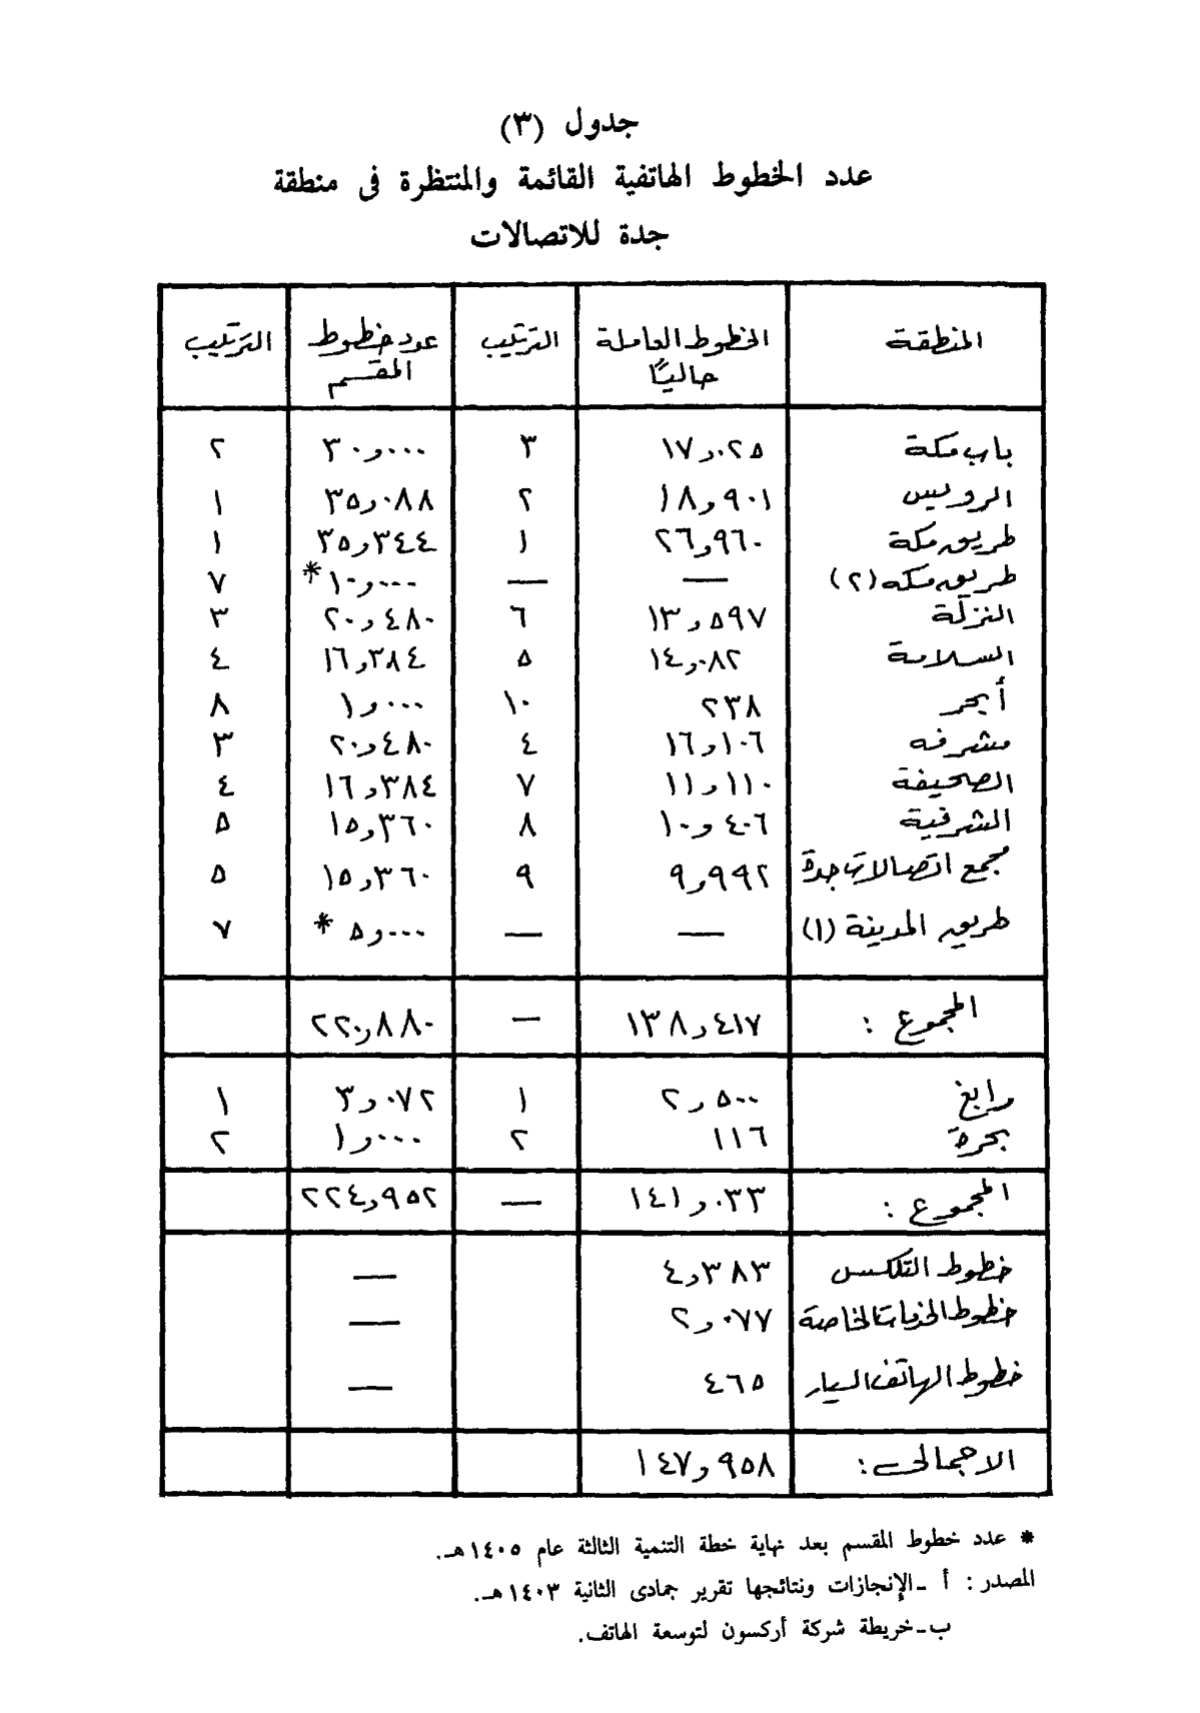 جدول (٣)
عدد الخطوط الهاتفية القائمة والمنتظرة فى منطقة
جدة للاتصالات
المنطقة الخطوط العاملة حاليًا الترتيب عدد خطوط المقسم الترتيب
باب مكة ١٧٫٠٢٥ ٣ ٣٠٫٠٠٠ ٢
الرويس ١٨٫٩٠١ ٢ ٣٥٫٠٨٨ ١
طريق مكة ٢٦٫٩٦٠ ١ ٣٥٫٣٤٤ ١
طريق مكه (٢) — — ١٠٫٠٠٠* ٧
النزلة ١٣٫٥٩٧ ٦ ٢٠٫٤٨٠ ٣
السلامة ١٤٫٠٨٢ ٥ ١٦٫٣٨٤ ٤
أبحر ٢٣٨ ١٠ ١٫٠٠٠ ٨
مشرفه ١٦٫١٠٦ ٤ ٢٠٫٤٨٠ ٣
الصحيفة ١١٫١١٠ ٧ ١٦٫٣٨٤ ٤
الشرفية ١٠٫٤٠٦ ٨ ١٥٫٣٦٠ ٥
مجمع اتصالات جدة ٩٫٩٩٢ ٩ ١٥٫٣٦٠ ٥
طريق المدينة (١) — — ٥٫٠٠٠ * ٧
المجموع : ١٣٨٫٤١٧ — ٢٢٠٫٨٨٠
رابغ ٢٫٥٠٠ ١ ٣٫٠٧٢ ١
بحرة ١١٦ ٢ ١٫٠٠٠ ٢
المجموع : ١٤١٫٠٣٣ — ٢٢٤٫٩٥٢
خطوط التلكس ٤٫٣٨٣ —
خطوط الخدمات الخاصة ٢٫٠٧٧ —
خطوط الهاتف السيار ٤٦٥ —
الاجمالى : ١٤٧٫٩٥٨
* عدد خطوط المقسم بعد نهاية خطة التنمية الثالثة عام ١٤٠٥هـ.
المصدر : أ ـ الإنجازات ونتائجها تقرير جمادى الثانية ١٤٠٣هـ.
ب ـ خريطة شركة أركسون لتوسعة الهاتف.